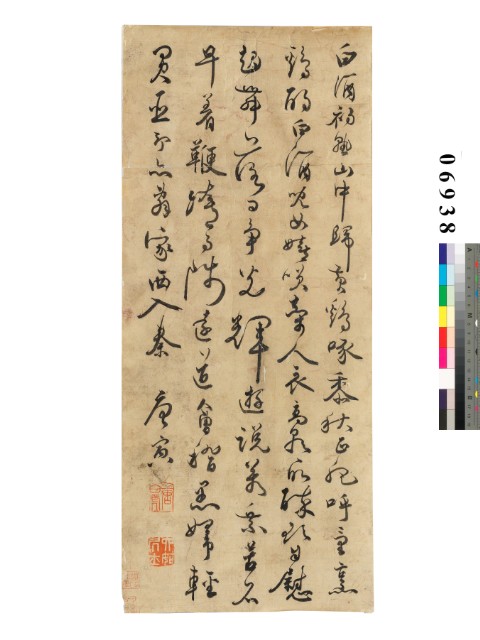 白酒初熟山中歸黃鷄啄黍秋正肥呼童烹
鷄酌白酒兒女嬉笑牽人衣高歌取醉欲自慰
起舞落日爭光輝遊說萬乘苦不
早着鞭跨馬涉遠道會稽愚婦輕
買臣余亦辭家西入秦 唐寅
06938